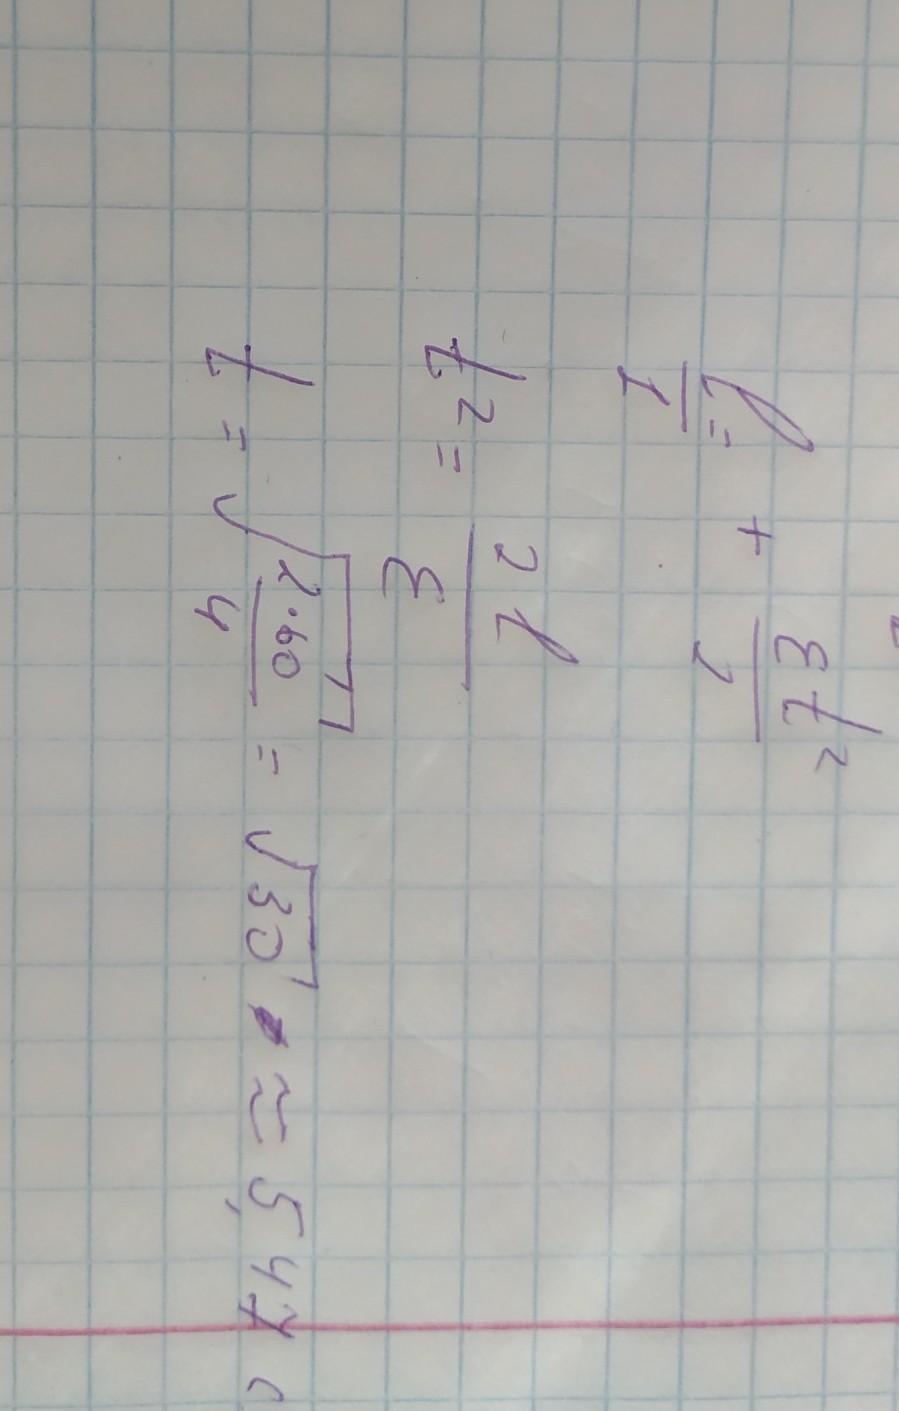 l/1 = + εt²/2
t² = 2l/ε
t = √(2·60/4) = √30 ≈ 5,47 с